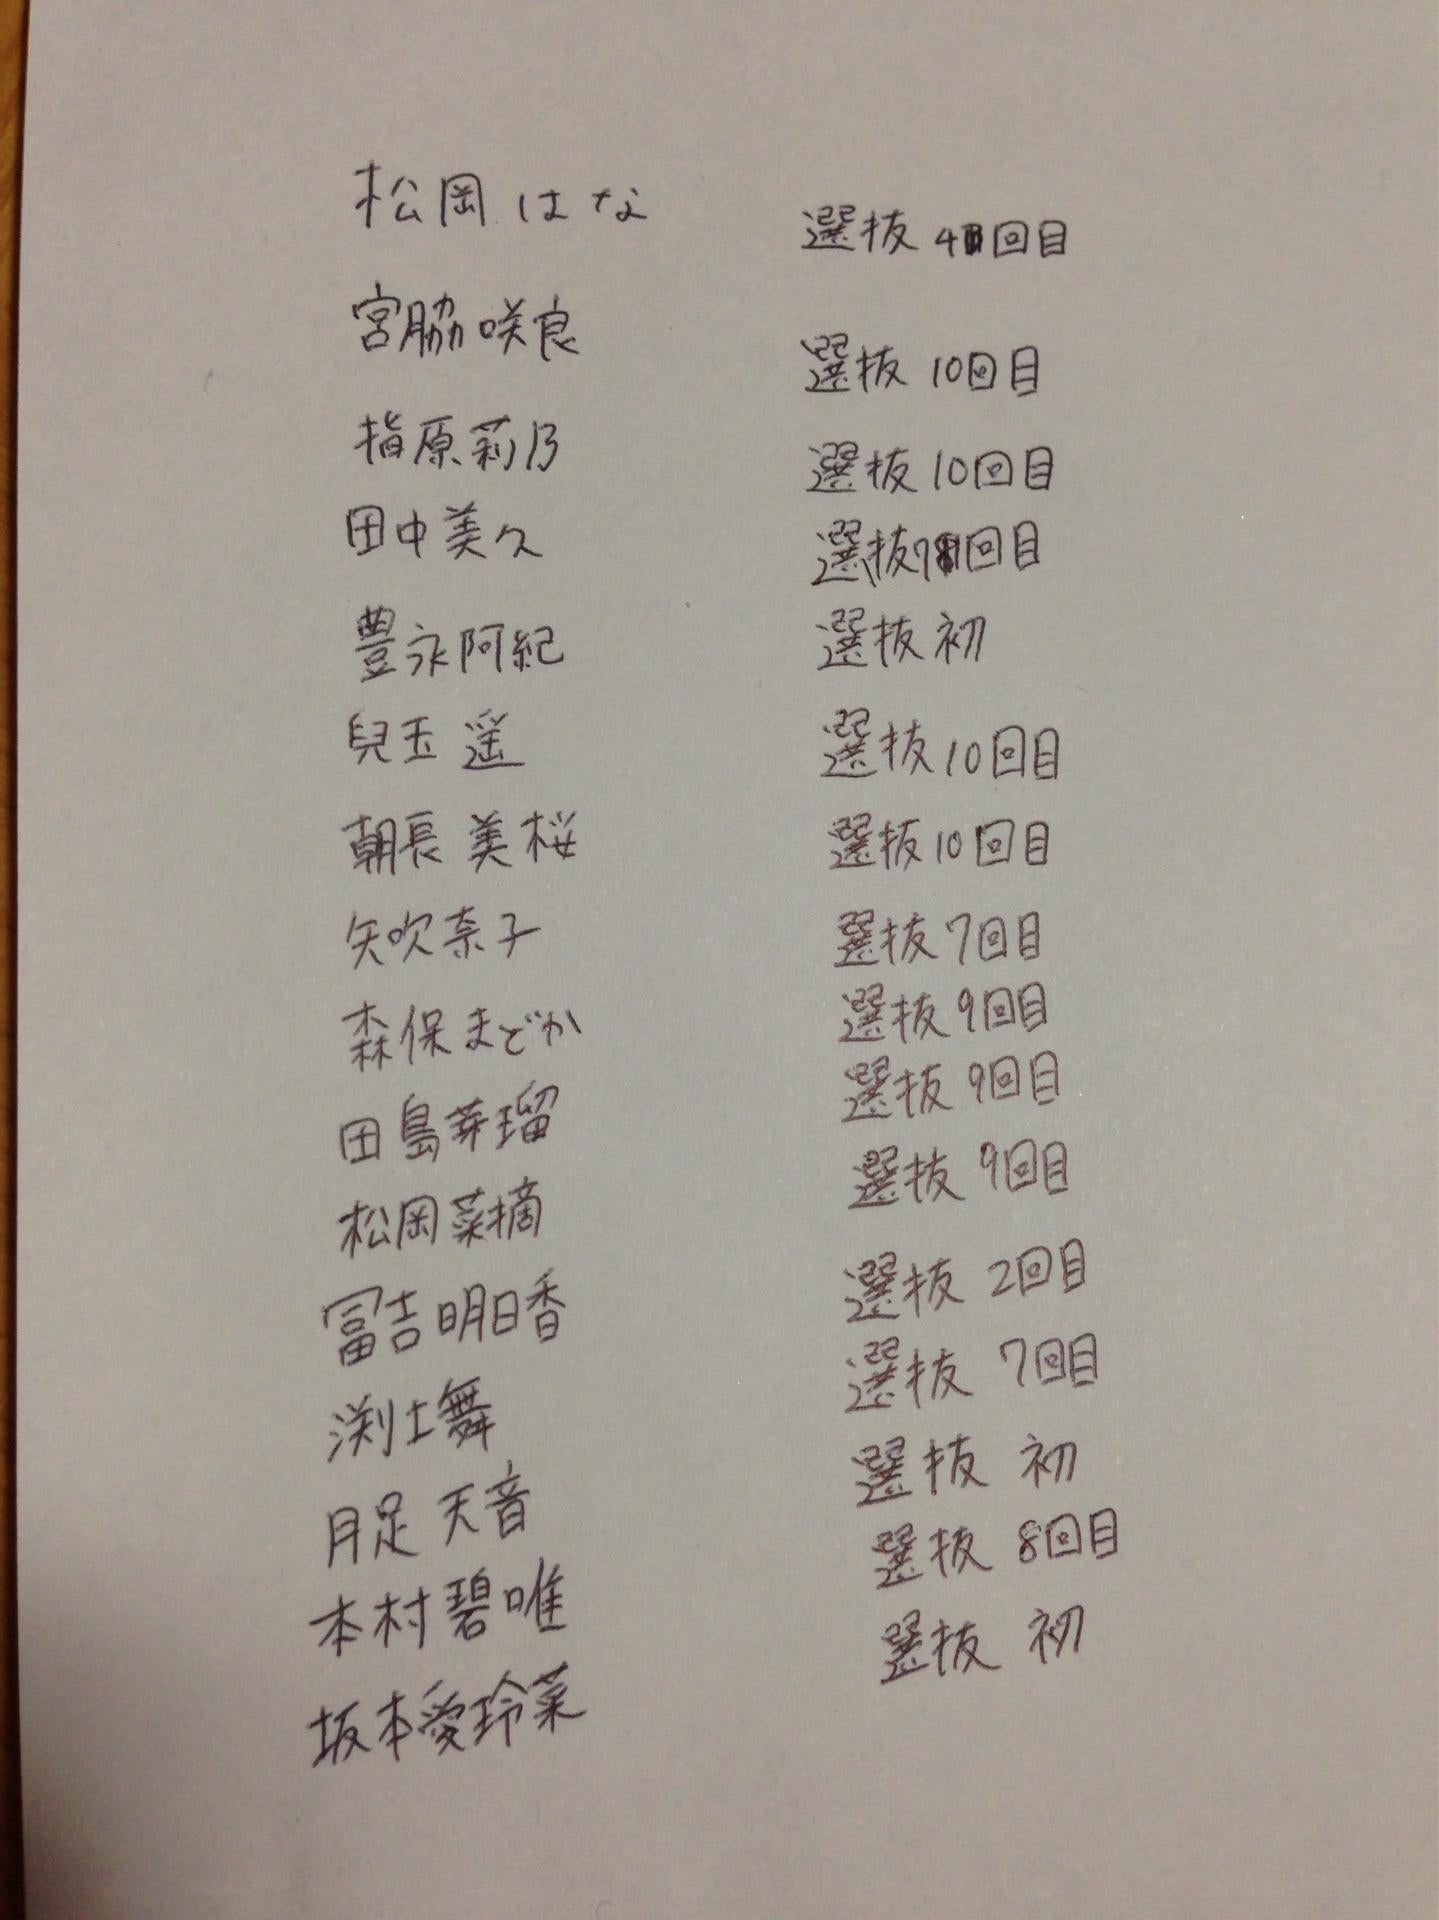 松岡はな 選抜4回目
宮脇咲良 選抜10回目
指原莉乃 選抜10回目
田中美久 選抜7回目
豊永阿紀 選抜初
兒玉遥 選抜10回目
朝長美桜 選抜10回目
矢吹奈子 選抜7回目
森保まどか 選抜9回目
田島芽瑠 選抜9回目
松岡菜摘 選抜9回目
冨吉明日香 選抜2回目
渕上舞 選抜7回目
月足天音 選抜初
本村碧唯 選抜8回目
坂本愛玲菜 選抜初